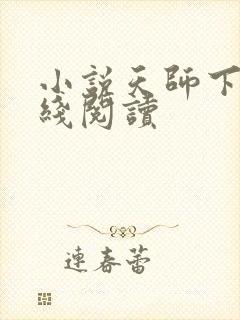 小説天師下
綫閱讀
連春蕾